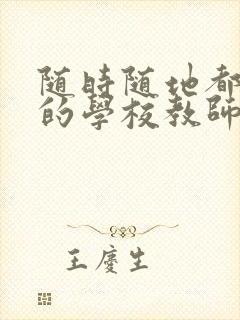 随時随地都
的學校教師
王慶生